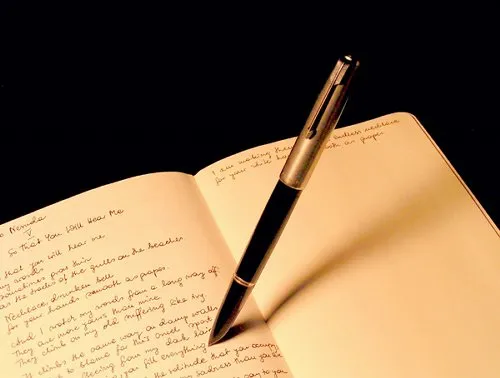 Neruda
V
So That You Will Hear Me
that you will hear me
my words
sometimes grow thin
as the tracks of the gulls on the beaches
Necklace, drunken bell
for your hands smooth as grapes.
And I watch my words from a long way off.
They are more yours than mine.
They climb on my old suffering like ivy.
It climbs the same way on damp walls
to blame for this cruel sport
fleeing from my dark lair
you fill everything
the solitude that you occupy
my sadness than you are
way to you
I am making endless necklace
for your white as grapes